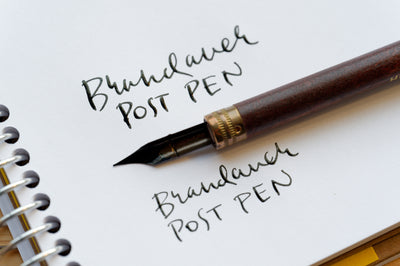 Brandauer
POST PEN
Brandauer
POST PEN